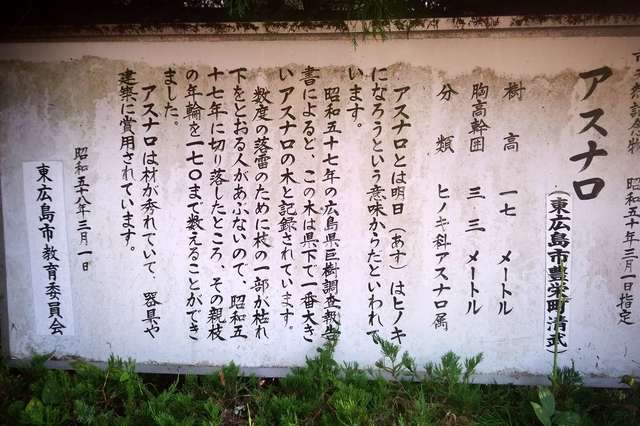 天然記念物 昭和五十年三月一日指定
アスナロ
（東広島市豊栄町清武）
樹高 一七 メートル
胸高幹囲 三.三 メートル
分類 ヒノキ科アスナロ属
アスナロとは明日（あす）はヒノキ
になろうという意味からたといわれて
います。
昭和五十七年の広島県巨樹調査報告
書によると、この木は県下で一番大き
いアスナロの木と記録されています。
数度の落雷のために枝の一部が枯れ
下をとおる人があぶないので、昭和五
十七年に切り落したところ、その親枝
の年輪を一七〇まで数えることができ
ました。
アスナロは材が秀れていて、器具や
建築に賞用されています。
昭和五十八年三月一日
東広島市教育委員会